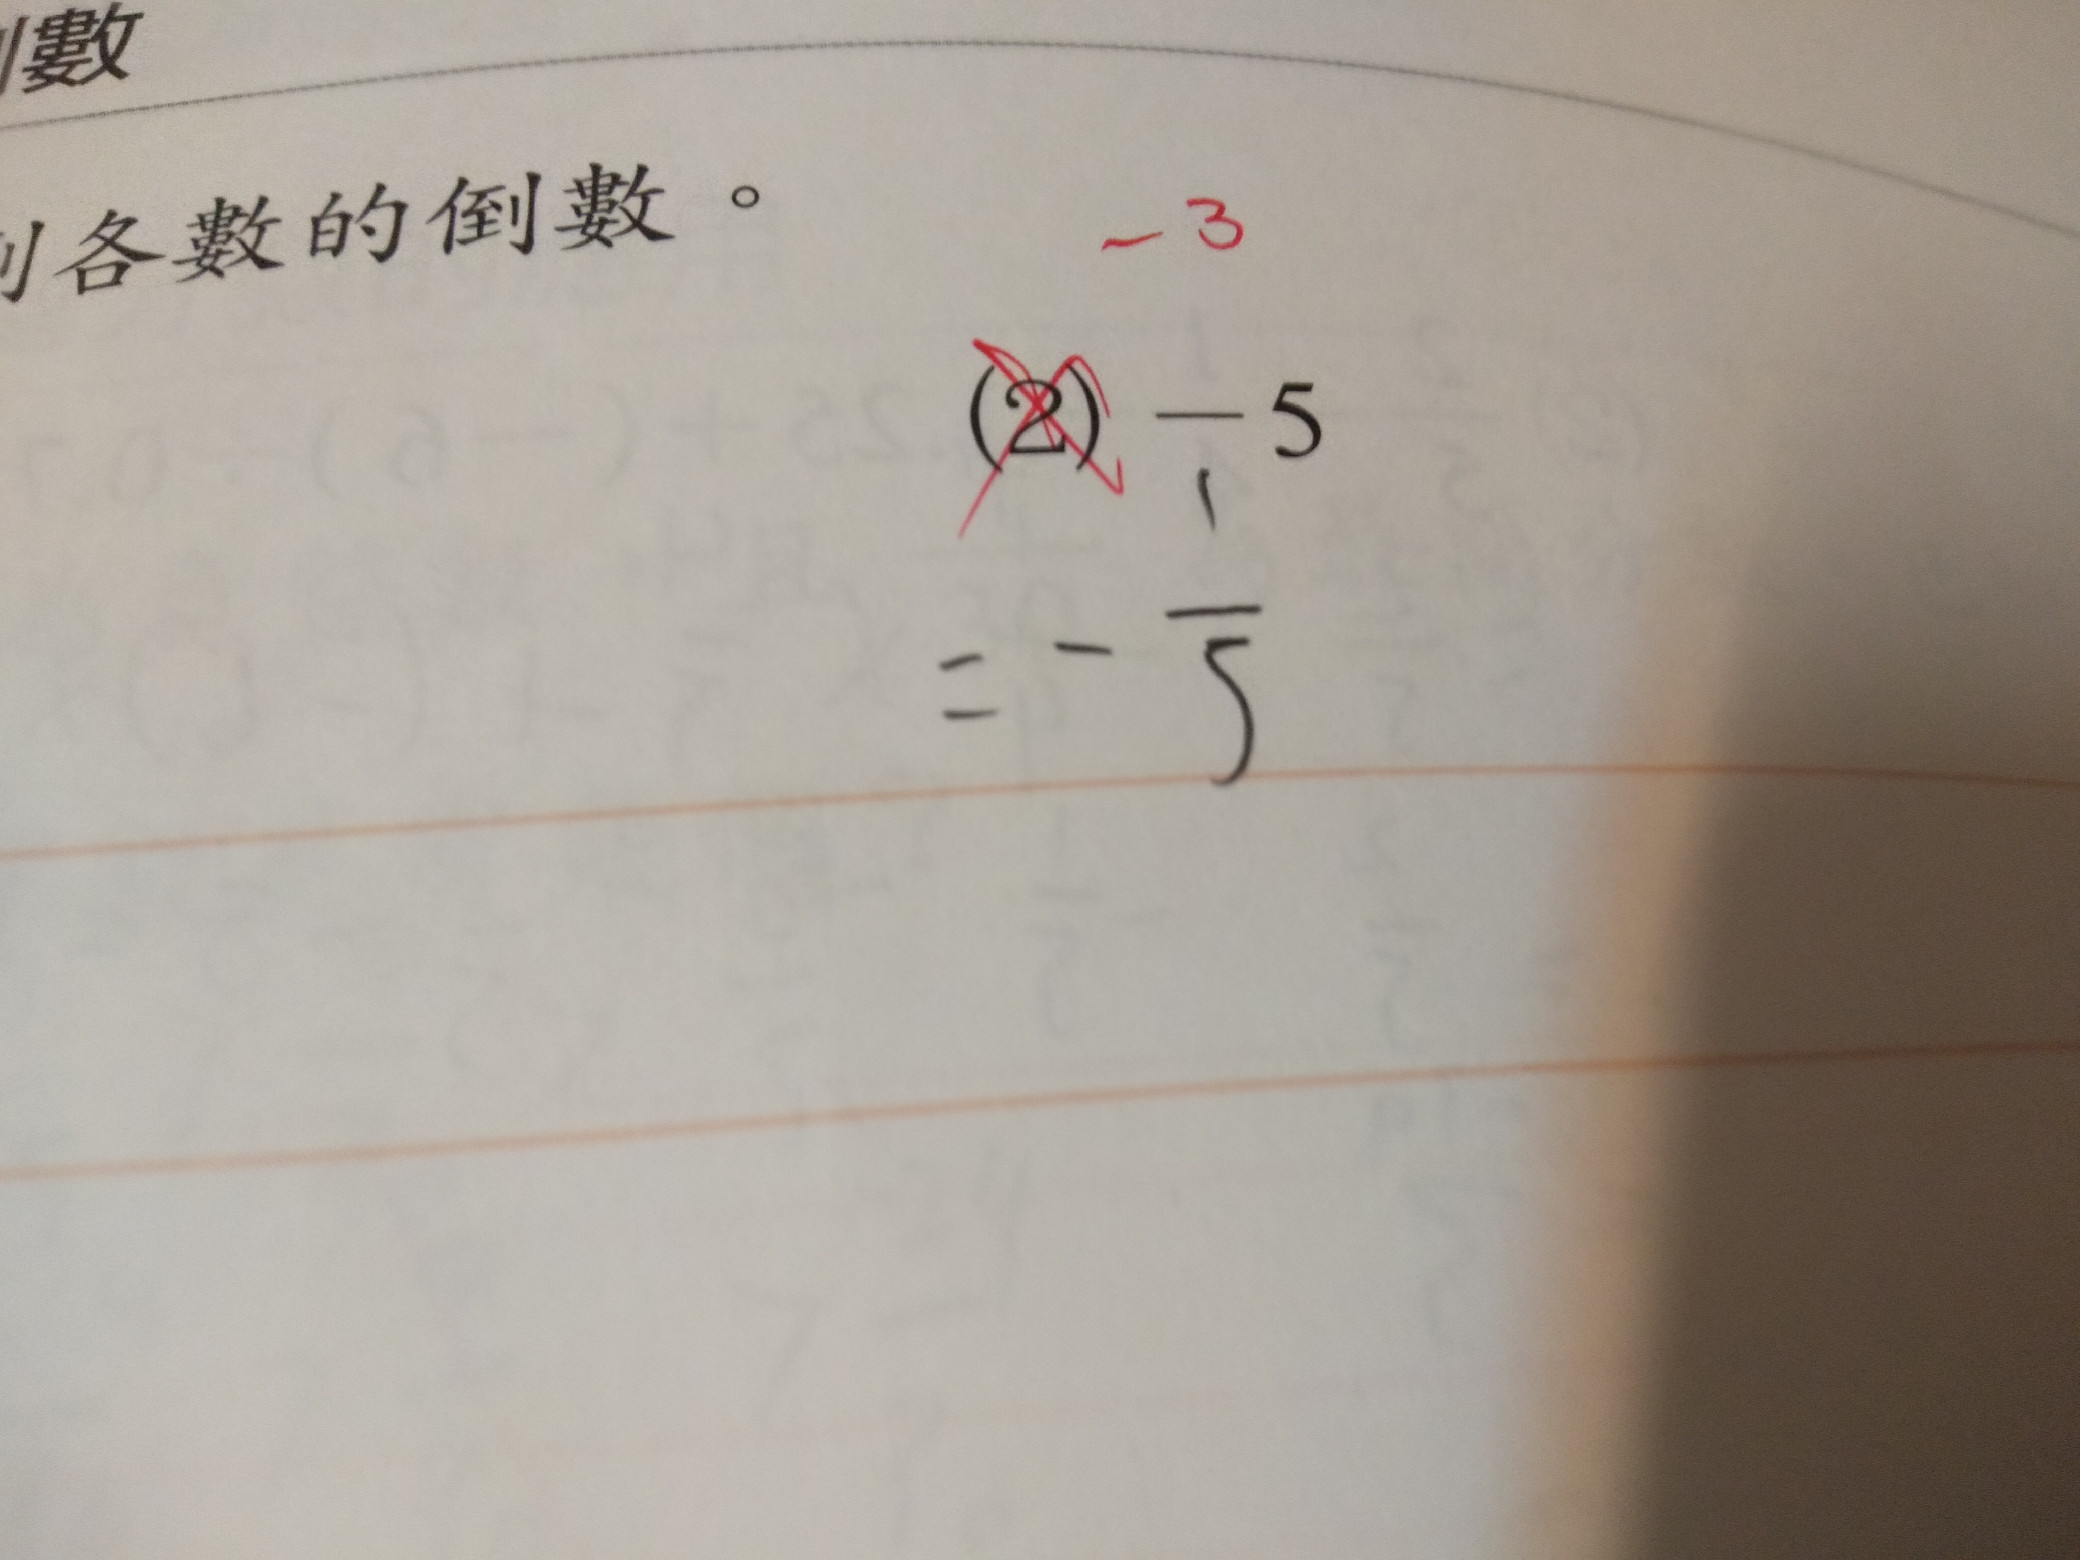 倒數
列各數的倒數。
- 3
(2) -5
= - 1/5